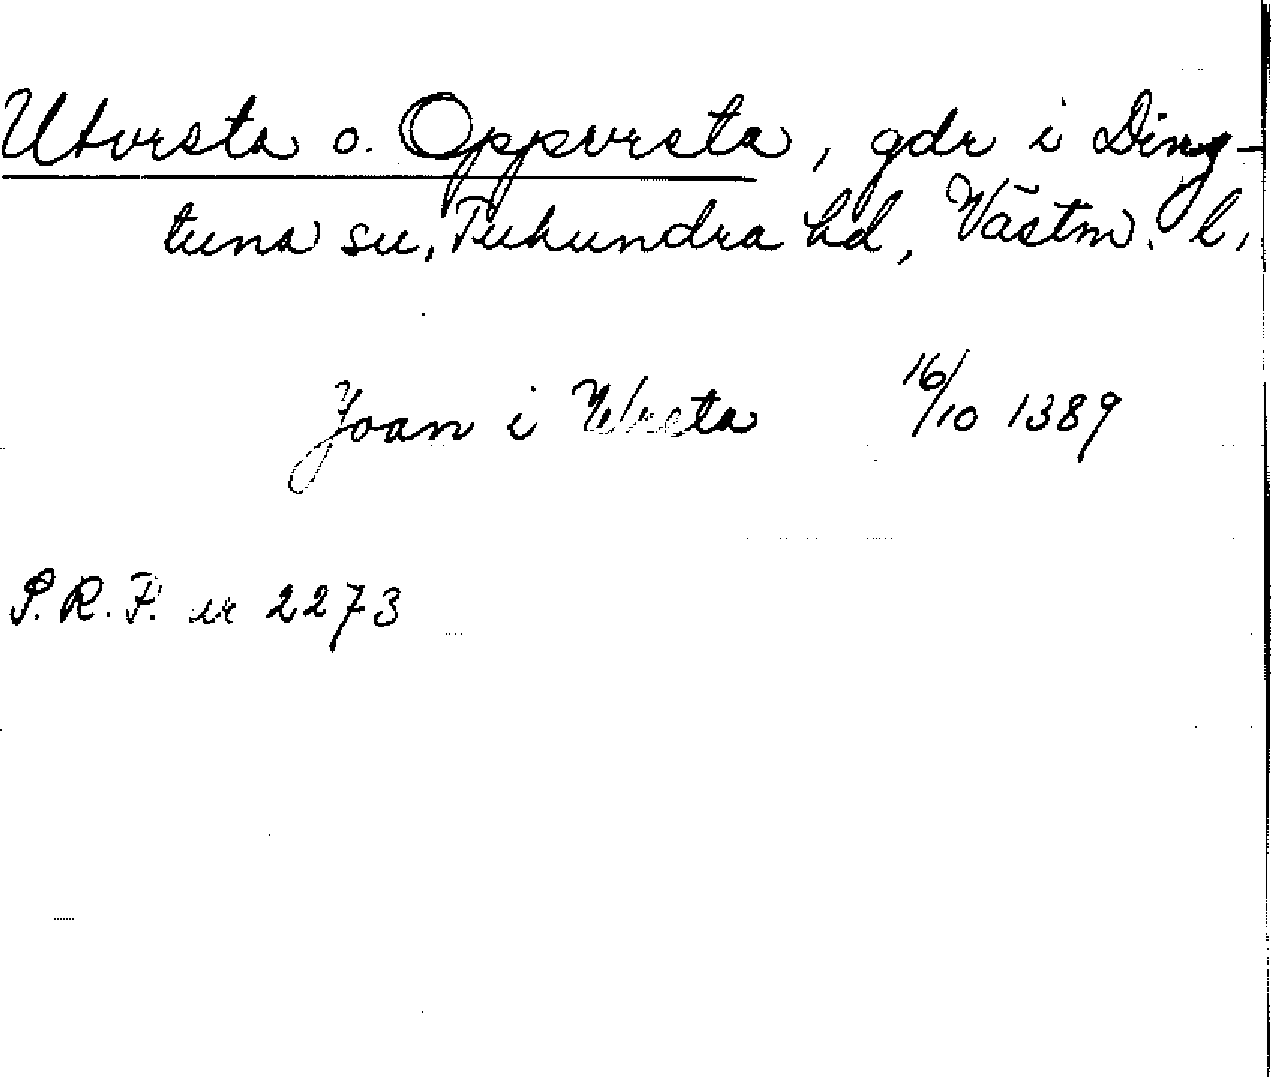 Utvrsta o. Oppvrsta, gdr i Ding-
tuna sn, Tuhundra hd, Västm. l,
Joan i Wreta 16/10 1389
S.R.P. nr 2273